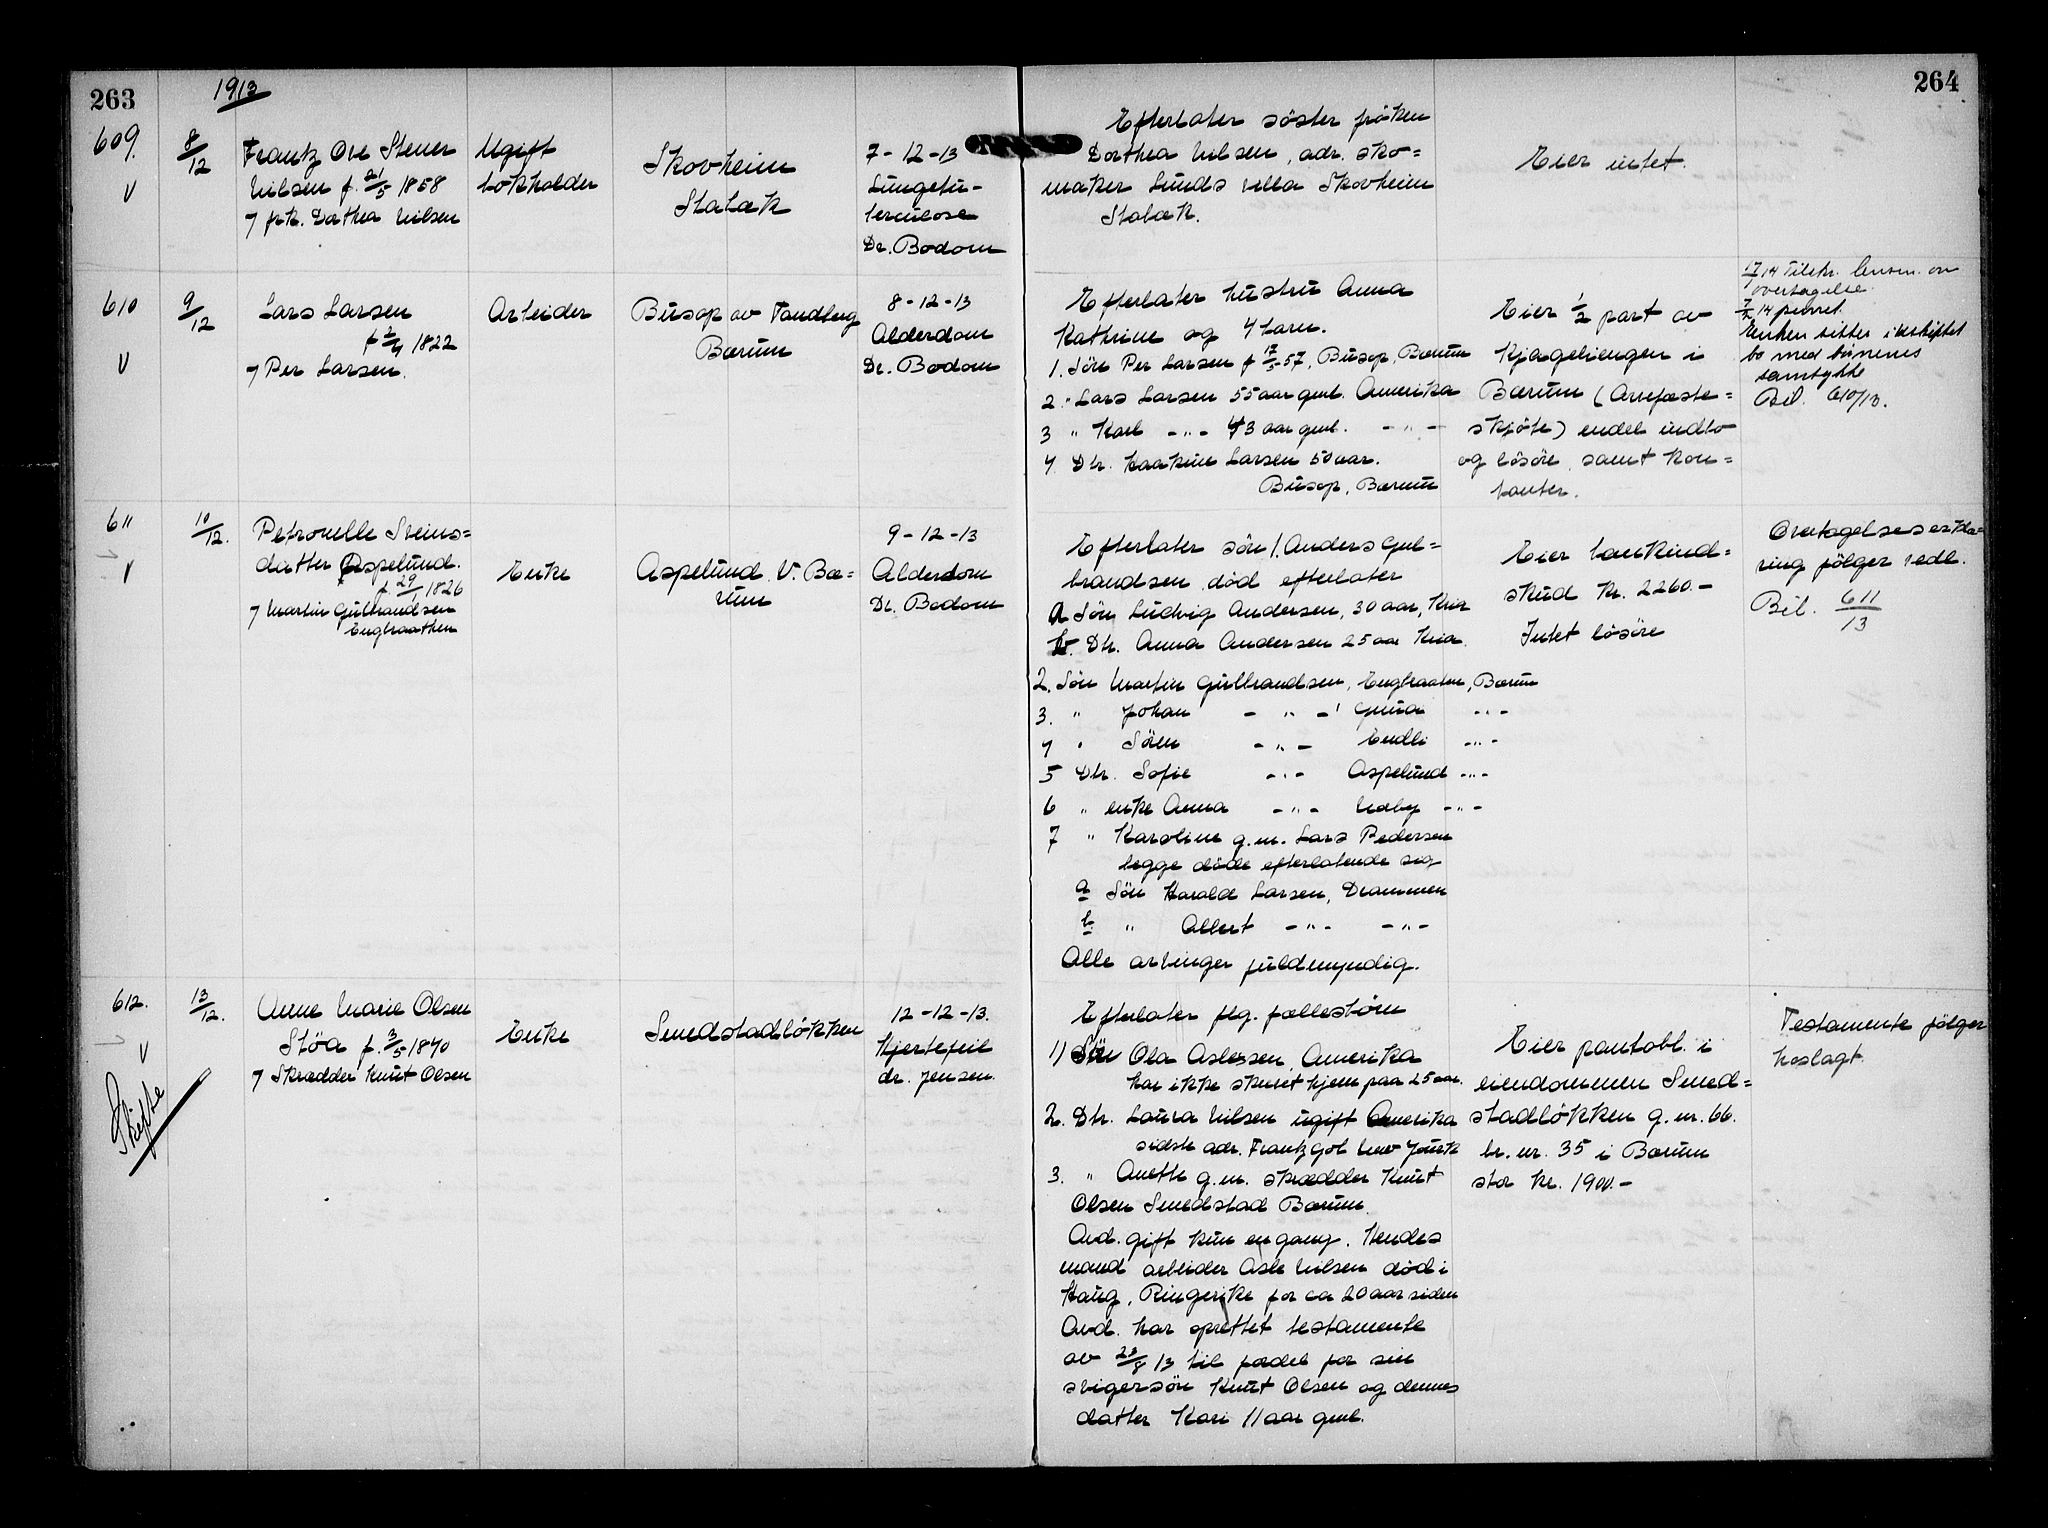 263
1913
609.
8/12
V
Frantz Ove Stener
Nilsen f. 21/5 1858
7 frk. Dorthea Nilsen
Ugift
bokholder
Skovheim
Stabæk
7-12-13
Lungetu-
berculose
Dr. Bodom
Efterlater söster fröken
Dorthea Nilsen, adr. sko=
maker Lunds villa Skovheim
Stabæk.
Eier intet.
264
610
9/12
V
Lars Larsen
f 2/4 1822
7 Per Larsen.
Arbeider
Busop av Tandberg
Bærum
8-12-13
Alderdom
Dr. Bodom
Efterlater hustru Anna
Kathrine og 4 barn.
1. Sön Per Larsen f 17/5-57, Busop, Bærum
2. " Lars Larsen 55 aar gml. Amerika
3 " Karl -"- 43 aar gml. -"-
4. Dtr. Haakine Larsen 50 aar.
Busop, Bærum
Eier 1/2 part av
Kjageliengen i
Bærum (Arvefæste=
skjöte) endel indbo
og lösöre, samt kon=
tanter.
14 Tilskr. lensm. om
overtagelse.
14 purret.
Enken sitter i uskiftet
bo med börnenes
samtykke
Bil. 610/13.
611
10/12.
V
Petronelle Sveins=
datter Aspelund.
f. 29/1 1826
7 Martin Gulbrandsen
Engbraathen
Enke
Aspelund V. Bæ=
rum
9-12-13
Alderdom
Dr. Bodom
Efterlater sön 1. Anders Gul=
brandsen död efterlater
a Sön Ludvig Andersen, 30 aar, Kria
b. Dtr. Anna Andersen 25 aar Kria.
2. Sön Martin Gulbrandsen, Engbraaten, Bærum
3. " Johan -"- -"-
4 " Sören -"- Endli -"-
5 Dtr. Sofie -"- Aspelund -"-
6 " enke Anna -"- -"-
7 " Karoline g.m. Lars Pedersen
begge döde efterlatende sig
a Sön Harald Larsen, Drammen
b. " Albert -"- -"-
Alle arvinger fuldmyndig.
Eier bankind=
skud kr. 2260.-
Intet lösöre
Overtagelseserklæ=
ring fölger vedl.
Bil. 611/13
612.
13/12.
V
Skifte
Anne Marie Olsen
Stöa f. 3/5 1840
7 Skrædder Knut Olsen
Enke
Smedstadlökken
12-12-13.
Hjertefeil
dr. Jensen.
Efterlater flg. fællesbörn
1) Sön Ola Aslessen, Amerika
har ikke skrevet hjem paa 25 aar.
2. Dtr. Laura Nilsen ugift Amerika
sidste adr. Frantz gol New York
3. " Anethe g.m. skrædder Knut
Olsen Smedstad Bærum.
Avd. gift kun en gang. Hendes
mand arbeider Asle Nilsen död i
Haug, Ringerike for ca 20 aar siden
Avd. har oprettet testamente
av 23/8 13 til fordel for sin
svigersön Knut Olsen og dennes
datter Kari 11 aar gml.
Eier pantobl. i
eiendommen Smed=
stadlökken g.nr. 66.
br. nr. 35 i Bærum
stor kr. 1900.-
Testamente fölger
hoslagt.